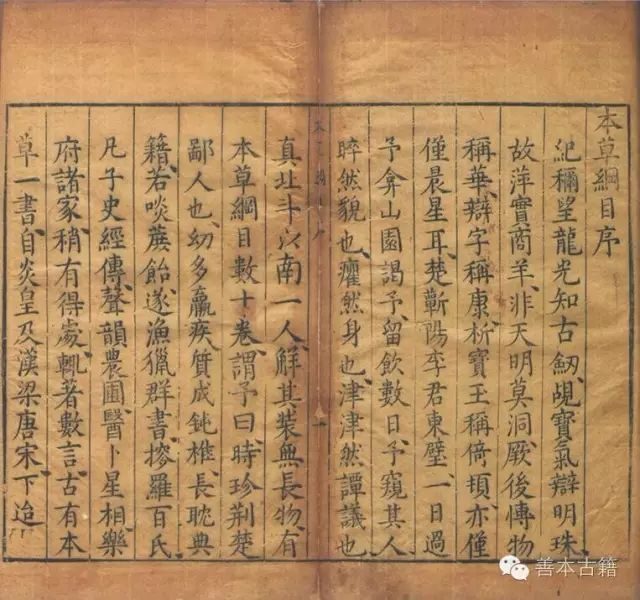 本草綱目序
紀稱望龍光知古劒覘寶氣辯明珠
故萍實商羊非天明莫洞厥後慱物
稱華辯字稱康析寶玉稱倚頓亦僅
僅晨星耳楚蘄陽李君東璧一日過
予弇山園謁予留飲數日予窺其人
睟然貌也癯然身也津津然譚議也
真北斗以南一人觧其裝無長物有
本草綱目數十卷謂予曰時珍荆楚
鄙人也幼多羸疾質成鈍椎長耽典
籍若啖蔗飴遂漁獵群書搜羅百氏
凡子史經傳聲韻農圃醫卜星相樂
府諸家稍有得處輒著數言古有本
草一書自炎皇及漢梁唐宋下迨
善本古籍